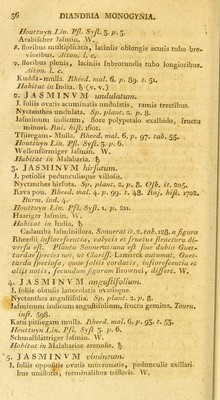 36 DIANDRIA MONOGYNIA.
Houttuyn Lin. Pfl. Syst. 3. p. 5.
Arabischer Jasmin. W.
ε. floribus multiplicatis, laciniis oblongis acutis tubo brevioribus. Siton. l. c.
γ. floribus plenis, laciniis subrotundis tubo longioribus. Siton. l. c.
Kudda-mulla. Rheed. mal. 6. p. 89. t. 51.
Habitat in India. ♄ (v. v.)
2. JASMINVM undulatum.
J. foliis ovatis acuminatis undulatis, ramis teretibus.
Nyctanthes undulata. Sp. plant. 2. p. 8.
Jasminum indicum, flore polypetalo exalbido, fructu minori. Raj. hist. 1601.
Tsjiregam-Mulla. Rheed. mal. 6. p. 97. tab. 55.
Houttuyn Lin. Pfl. Syst. 3. p. 6.
Wellenförmiger Jasmin. W.
Habitat in Malabaria. ♄
3. JASMINVM hirsutum.
J. petiolis pedunculisque villosis.
Nyctanthes hirsuta. Sp. plant. 2. p. 8. Osb. it. 205.
Rava pou. Rheed. mal. 4. p. 99. t. 48. Raj. hist. 1702. Burm. ind. 4.
Houttuyn Lin. Pfl. Syst. 1. p. 211.
Haariger Jasmin. W.
Habitat in India. ♄
Cadamba Jasminiflora. Sonnerat it. 2. tab. 128. a figura Rheedii inflorescentia, calycis et fructus structura diversa est. Planta Sonneratiana est sine dubio Guettardae species nec, ut Clariss. Lamarck autumat, Guettarda speciosa, quae foliis cordatis, inflorescentia et aliis notis, secundum figuram Brownei, differt. W.
4. JASMINVM angustifolium.
J. foliis obtusis lanceolatis ovatisque.
Nyctanthes angustifolia. Sp. plant. 2. p. 8.
Jasminum indicum angustifolium, fructu gemino. Tourn. inst. 598.
Katu pitsiegam mulla. Rheed. mal. 6. p. 93. t. 53.
Houttuyn Lin. Pfl. Syst. 3. p. 6.
Schmalblättriger Jasmin. W.
Habitat in Malabariae arenosis. ♄
5. JASMINVM vimineum.
J. foliis oppositis ovatis mucronatis, pedunculis axillaribus unifloris, terminalibus trifloris. W.